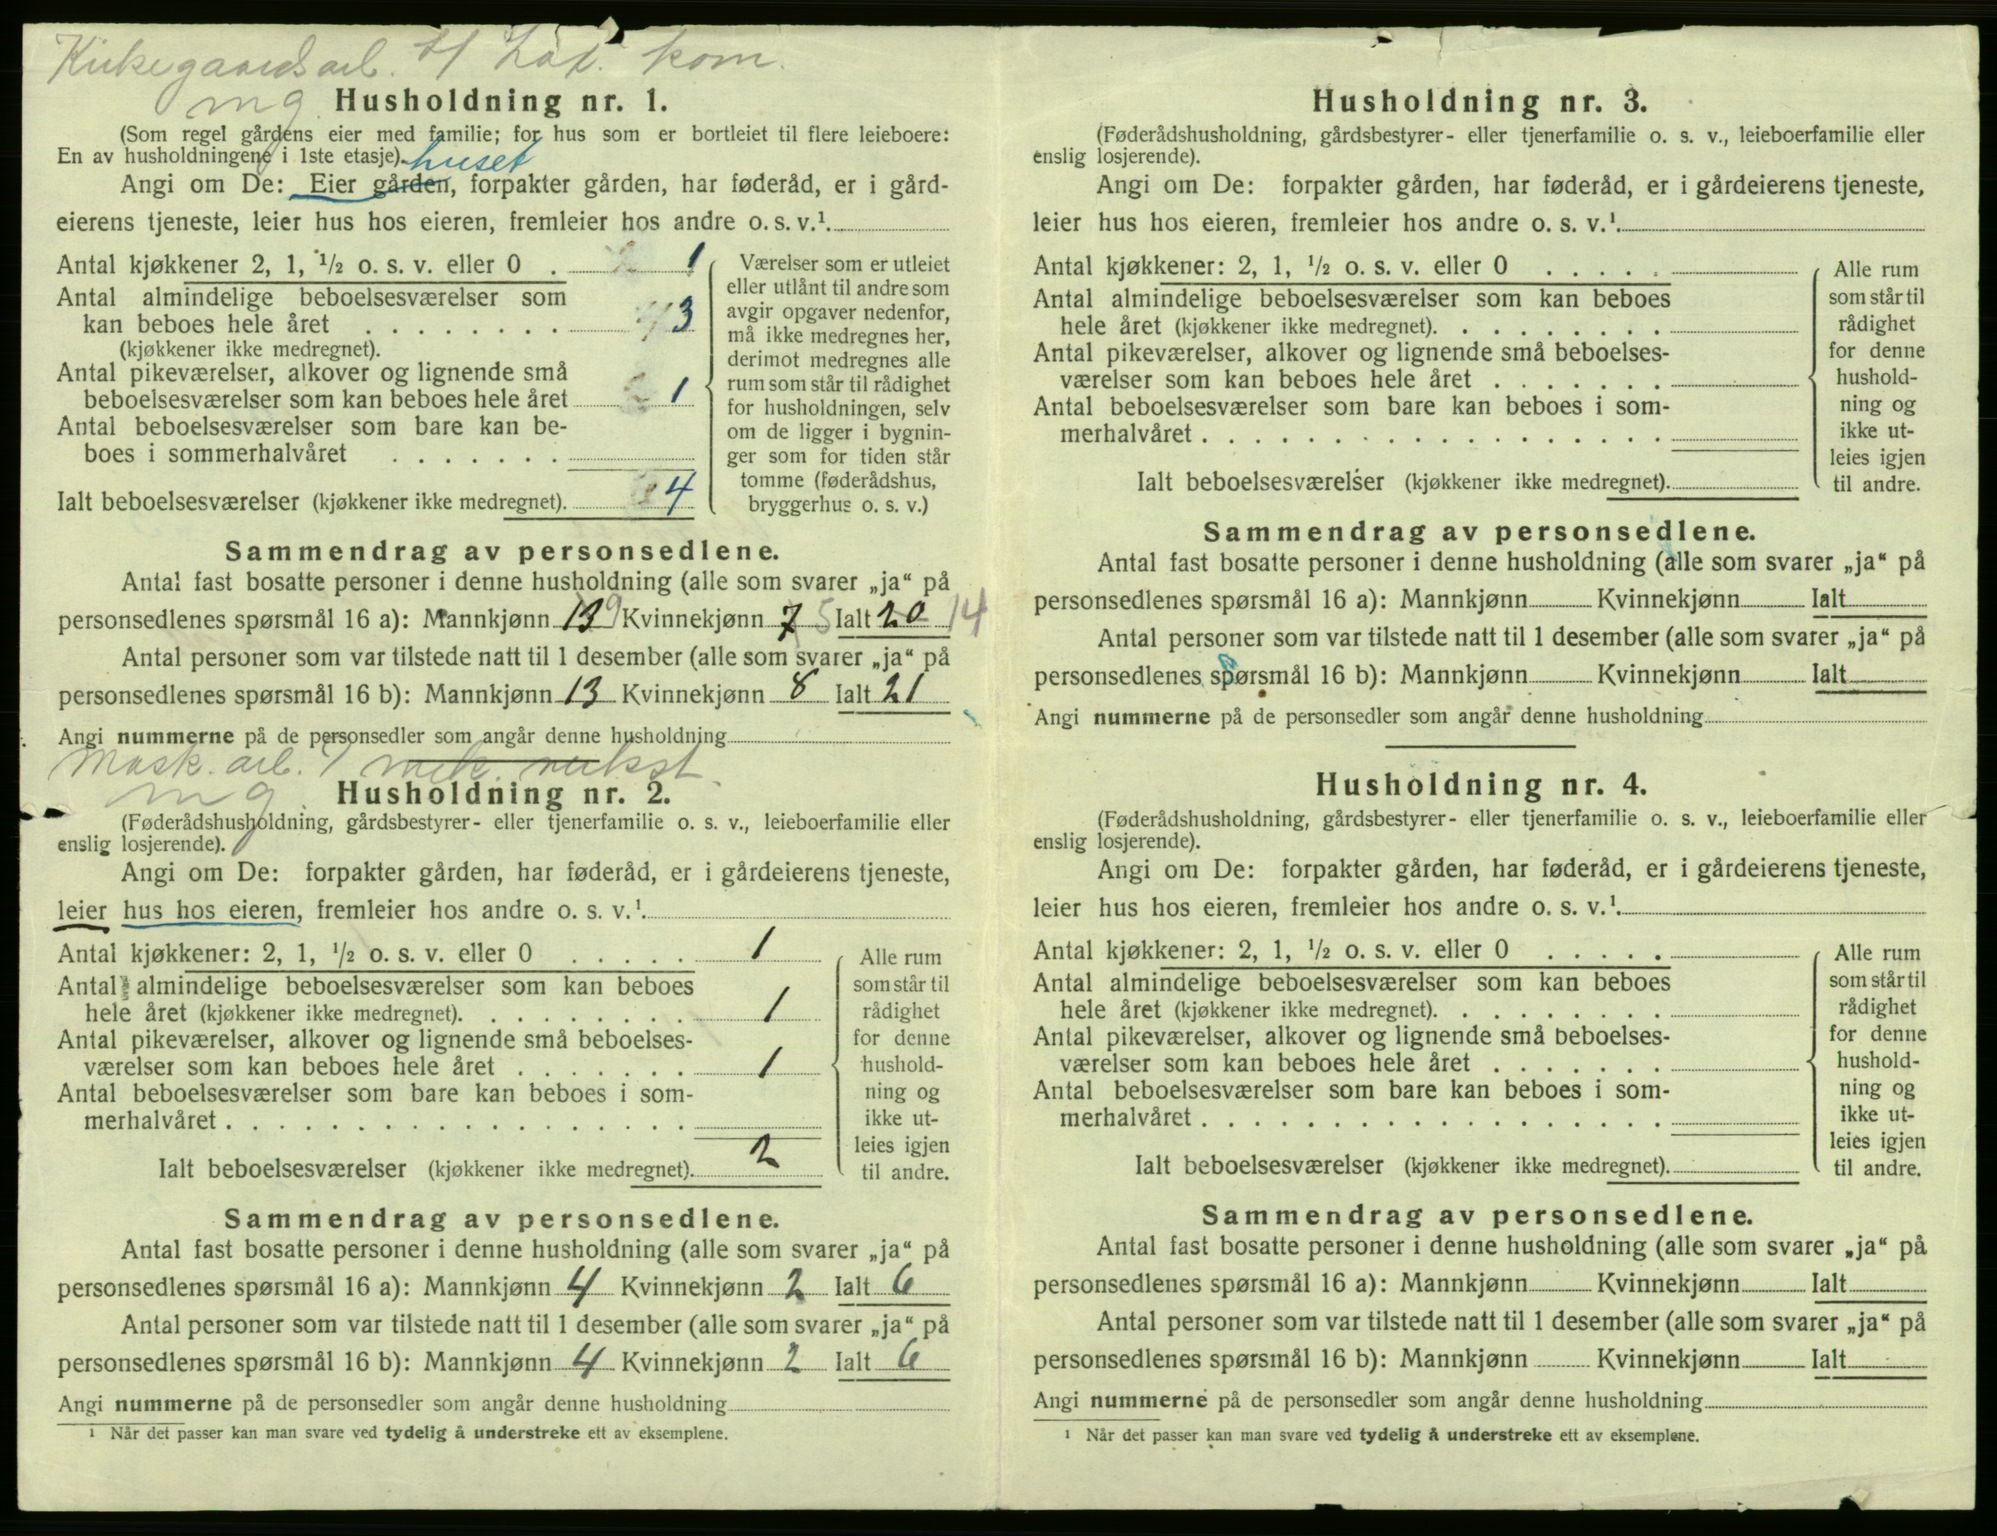 Kirkegaardsarb. kom.
mg
Husholdning nr. 1.
(Som regel gårdens eier med familie; for hus som er bortleiet til flere leieboere:
En av husholdningene i 1ste etasje).
huset
Angi om De: Eier gården, forpakter gården, har føderåd, er i gård-
eierens tjeneste, leier hus hos eieren, fremleier hos andre o. s. v.¹
Antal kjøkkener 2, 1, ½ o. s. v. eller 0 . 1
Antal almindelige beboelsesværelser som
kan beboes hele året . . . . . . . . 3
(kjøkkener ikke medregnet).
Antal pikeværelser, alkover og lignende små
beboelsesværelser som kan beboes hele året 1
Antal beboelsesværelser som bare kan be-
boes i sommerhalvåret . . . . . . .
Ialt beboelsesværelser (kjøkkener ikke medregnet). 4
Værelser som er utleiet
eller utlånt til andre som
avgir opgaver nedenfor,
må ikke medregnes her,
derimot medregnes alle
rum som står til rådighet
for husholdningen, selv
om de ligger i bygnin-
ger som for tiden står
tomme (føderådshus,
bryggerhus o. s. v.)
Sammendrag av personsedlene.
Antal fast bosatte personer i denne husholdning (alle som svarer „ja“ på
personsedlenes spørsmål 16 a): Mannkjønn 13 9 Kvinnekjønn 7 5 Ialt 20 14
Antal personer som var tilstede natt til 1 desember (alle som svarer „ja“ på
personsedlenes spørsmål 16 b): Mannkjønn 13 Kvinnekjønn 8 Ialt 21
Angi nummerne på de personsedler som angår denne husholdning
Mask. arb. mek. verkst.
mg
Husholdning nr. 2.
(Føderådshusholdning, gårdsbestyrer- eller tjenerfamilie o. s. v., leieboerfamilie eller
enslig losjerende).
Angi om De: forpakter gården, har føderåd, er i gårdeierens tjeneste,
leier hus hos eieren, fremleier hos andre o. s. v.¹
Antal kjøkkener: 2, 1, ½ o. s. v. eller 0 . . . . . 1
Antal almindelige beboelsesværelser som kan beboes
hele året (kjøkkener ikke medregnet). . . . . . . . . 1
Antal pikeværelser, alkover og lignende små beboelses-
værelser som kan beboes hele året . . . . . . . 1
Antal beboelsesværelser som bare kan beboes i som-
merhalvåret . . . . . . . . . . . . . . . . . .
Ialt beboelsesværelser (kjøkkener ikke medregnet). 2
Alle rum
som står til
rådighet
for denne
hushold-
ning og
ikke ut-
leies igjen
til andre.
Sammendrag av personsedlene.
Antal fast bosatte personer i denne husholdning (alle som svarer „ja“ på
personsedlenes spørsmål 16 a): Mannkjønn 4 Kvinnekjønn 2 Ialt 6
Antal personer som var tilstede natt til 1 desember (alle som svarer „ja“ på
personsedlenes spørsmål 16 b): Mannkjønn 4 Kvinnekjønn 2 Ialt 6
Angi nummerne på de personsedler som angår denne husholdning
¹ Når det passer kan man svare ved tydelig å understreke ett av eksemplene.
Husholdning nr. 3.
(Føderådshusholdning, gårdsbestyrer- eller tjenerfamilie o. s. v., leieboerfamilie eller
enslig losjerende).
Angi om De: forpakter gården, har føderåd, er i gårdeierens tjeneste,
leier hus hos eieren, fremleier hos andre o. s. v.¹
Antal kjøkkener: 2, 1, ½ o. s. v. eller 0 . . . . .
Antal almindelige beboelsesværelser som kan beboes
hele året (kjøkkener ikke medregnet). . . . . . . . .
Antal pikeværelser, alkover og lignende små beboelses-
værelser som kan beboes hele året . . . . . . .
Antal beboelsesværelser som bare kan beboes i som-
merhalvåret . . . . . . . . . . . . . . . . . .
Ialt beboelsesværelser (kjøkkener ikke medregnet).
Alle rum
som står til
rådighet
for denne
hushold-
ning og
ikke ut-
leies igjen
til andre.
Sammendrag av personsedlene.
Antal fast bosatte personer i denne husholdning (alle som svarer „ja“ på
personsedlenes spørsmål 16 a): Mannkjønn Kvinnekjønn Ialt
Antal personer som var tilstede natt til 1 desember (alle som svarer „ja“ på
personsedlenes spørsmål 16 b): Mannkjønn Kvinnekjønn Ialt
Angi nummerne på de personsedler som angår denne husholdning
Husholdning nr. 4.
(Føderådshusholdning, gårdsbestyrer- eller tjenerfamilie o. s. v., leieboerfamilie eller
enslig losjerende).
Angi om De: forpakter gården, har føderåd, er i gårdeierens tjeneste,
leier hus hos eieren, fremleier hos andre o. s. v.¹
Antal kjøkkener: 2, 1, ½ o. s. v. eller 0 . . . . .
Antal almindelige beboelsesværelser som kan beboes
hele året (kjøkkener ikke medregnet). . . . . . . . .
Antal pikeværelser, alkover og lignende små beboelses-
værelser som kan beboes hele året . . . . . . .
Antal beboelsesværelser som bare kan beboes i som-
merhalvåret . . . . . . . . . . . . . . . . . .
Ialt beboelsesværelser (kjøkkener ikke medregnet).
Alle rum
som står til
rådighet
for denne
hushold-
ning og
ikke ut-
leies igjen
til andre.
Sammendrag av personsedlene.
Antal fast bosatte personer i denne husholdning (alle som svarer „ja“ på
personsedlenes spørsmål 16 a): Mannkjønn Kvinnekjønn Ialt
Antal personer som var tilstede natt til 1 desember (alle som svarer „ja“ på
personsedlenes spørsmål 16 b): Mannkjønn Kvinnekjønn Ialt
Angi nummerne på de personsedler som angår denne husholdning
¹ Når det passer kan man svare ved tydelig å understreke ett av eksemplene.